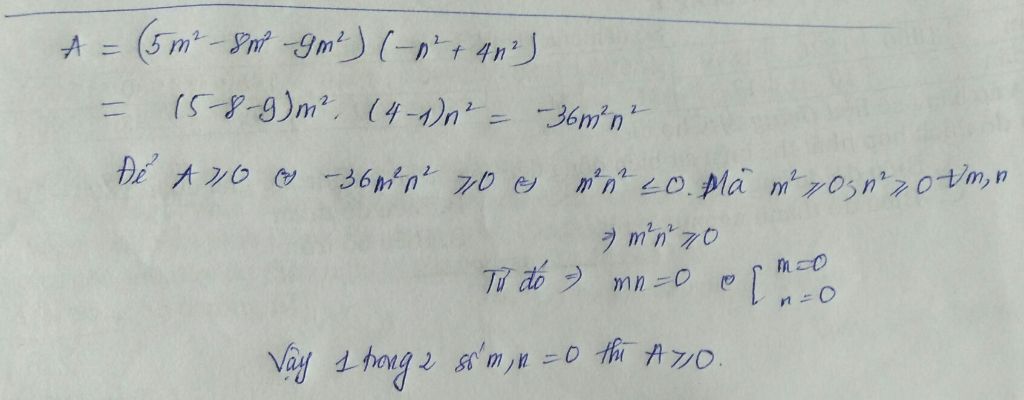 A = (5m² - 8m² - 9m²) (-n² + 4n²)
= (5-8-9)m². (4-1)n² = -36m²n²
Để A ≥ 0 ⇔ -36m²n² ≥ 0 ⇔ m²n² ≤ 0. Mà m² ≥ 0; n² ≥ 0 ∀m,n
⇒ m²n² ≥ 0
Từ đó ⇒ mn = 0 ⇔ [ m=0
n=0
Vậy 1 trong 2 số m,n = 0 thì A ≥ 0.